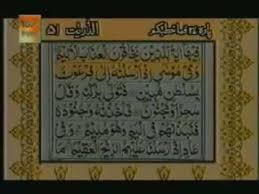 الذّٰرِيٰت ۵۱
فِيْهَآ اٰيَةً لِّلَّذِيْنَ يَخَافُوْنَ الْعَذَابَ الْاَلِيْمَ
وَفِيْ مُوْسٰٓى اِذْ اَرْسَلْنٰهُ اِلٰى فِرْعَوْنَ
بِسُلْطٰنٍ مُّبِيْنٍ فَتَوَلّٰى بِرُكْنِهٖ وَقَالَ
سٰحِرٌ اَوْ مَجْنُوْنٌ فَاَخَذْنٰهُ وَجُنُوْدَهٗ
فَنَبَذْنٰهُمْ فِي الْيَمِّ وَهُوَ مُلِيْمٌ وَفِيْ
عَادٍ اِذْ اَرْسَلْنَا عَلَيْهِمُ الرِّيْحَ الْعَقِيْمَ مَا